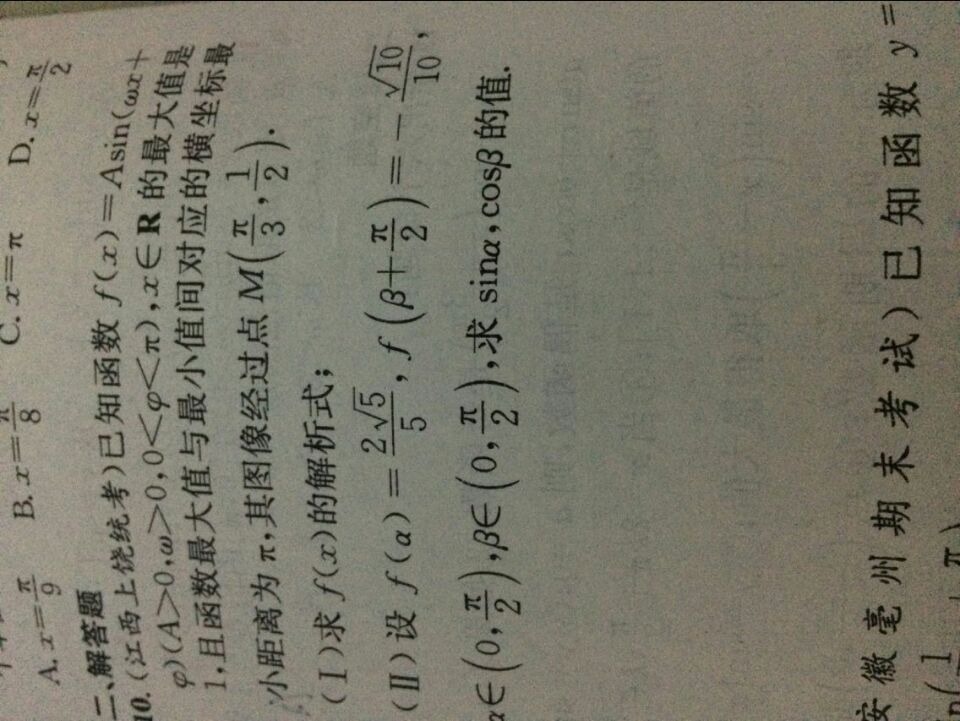 A. x=π/9 B. x=π/8 C. x=π D. x=π/2
二、解答题
10. (江西上饶统考)已知函数 f(x)=Asin(ωx+
φ)(A>0,ω>0,0<φ<π),x∈R 的最大值是
1,且函数最大值与最小值间对应的横坐标最
小距离为 π,其图像经过点 M(π/3,1/2).
(Ⅰ)求 f(x)的解析式;
(Ⅱ)设 f(α)=2√5/5,f(β+π/2)=-√10/10,
α∈(0,π/2),β∈(0,π/2),求 sinα,cosβ的值.
安徽亳州期末考试)已知函数 y=